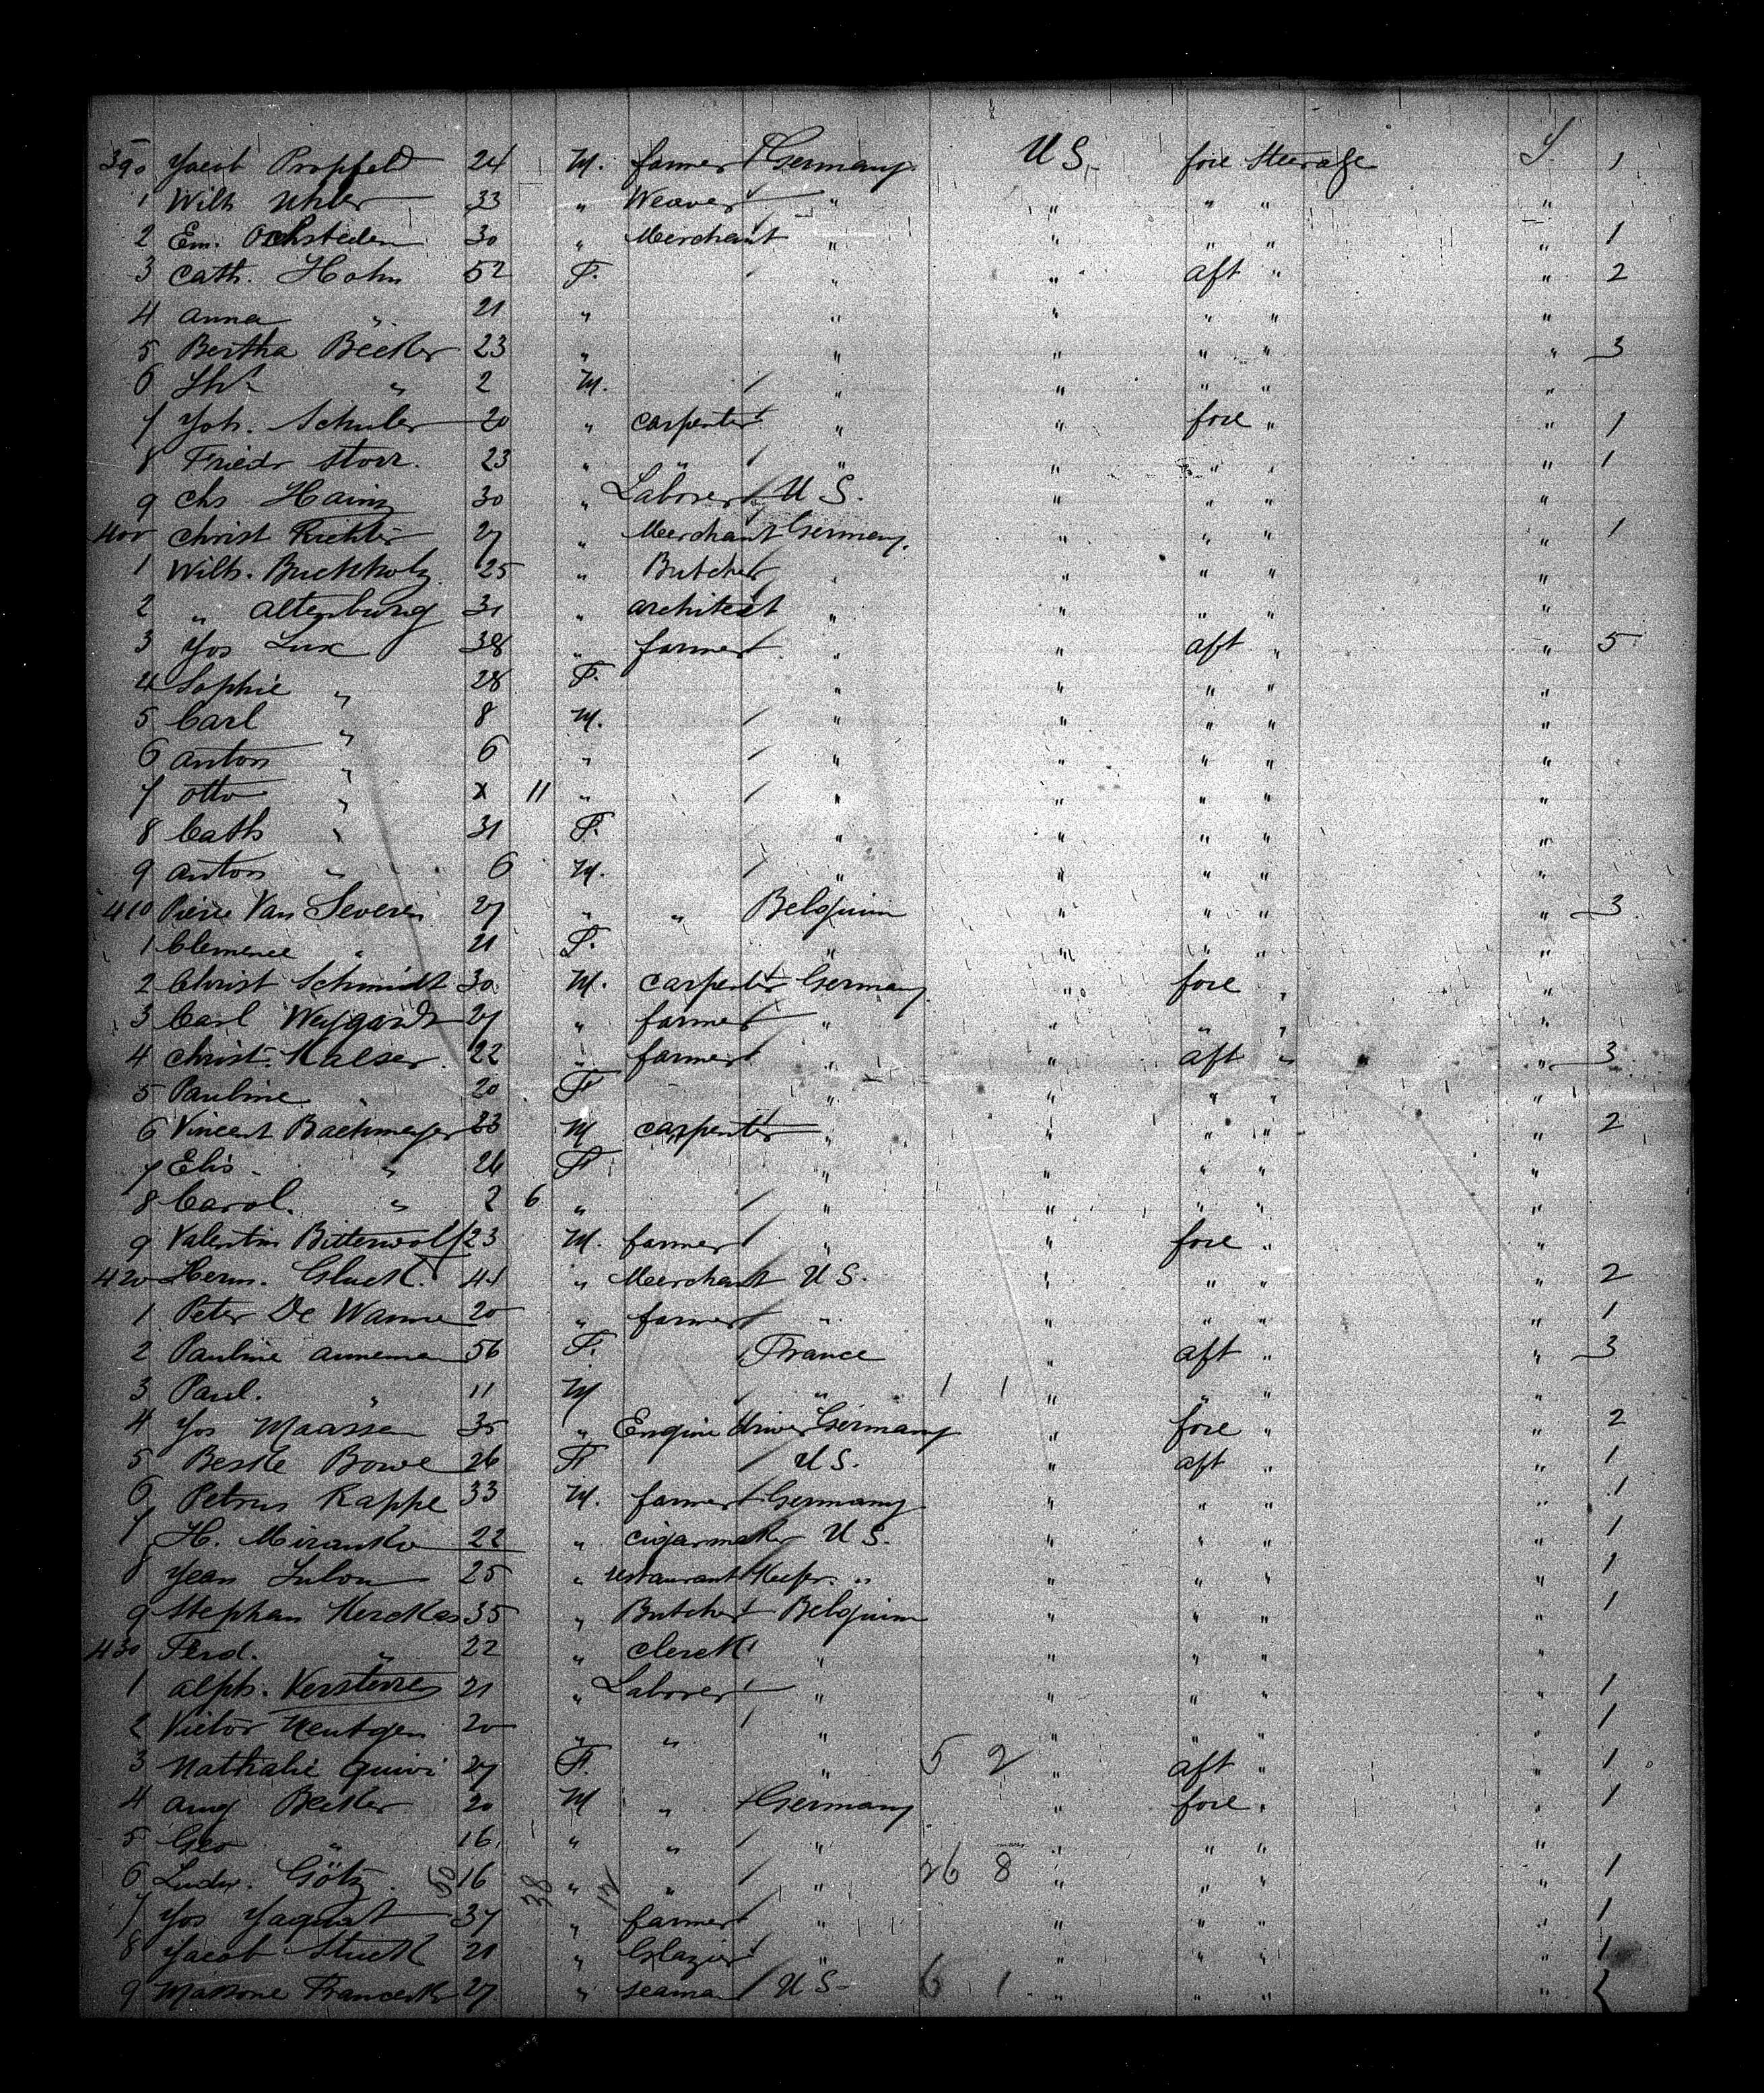 390 Jacob Propfeld 24 M. farmer Germany U S. fore Steerage 1
1 Wilh Uhler 33 " Weaver " " " " "
2 Em. Ochsteden 30 " Merchant " " " " " 1
3 Cath. Hohn 52 F. " " aft " " 2
4 Anna " 21 " " " " " "
5 Bertha Becker 23 " " " " " " 3
6 " 2 M. " " " " "
7 Joh. Schuler 20 " Carpenter " " fore " " 1
8 Friedr Storz. 23 " " " " " " " 1
9 Chs Hainz 30 " Laborer U S. " " " "
400 Christ Richter 27 " Merchant Germany. " " " " 1
1 Wilh. Buchholz 25 " Butcher " " " " "
2 " Altenburg 31 " architect " " " " "
3 Jos Lux 38 " farmer " " aft " " 5
4 Sophie " 28 F. " " " " "
5 Carl " 8 M. " " " " "
6 Anton " 6 " " " " " "
7 Otto " x 11 " " " " " "
8 Cath " 31 F. " " " " "
9 Anton " 6 M. " " " " "
410 Pierre Van Severen 27 " " Belgium " " " " 3
1 Clemence " 21 F. " " " " "
2 Christ Schmidt 30 M. Carpenter Germany " fore " "
3 Carl 27 " farmer " " " " "
4 Christ. Kaeser. 22 " farmer " " aft " " 3
5 Pauline " 20 F " " " " "
6 Vincent Bachmeyer 33 M carpenter " " " " " 2
7 Elis " 26 F " " " " "
8 Carol. " 2 6 " " " " " "
9 Valentin Bitterwolf 23 M. farmer " " fore " "
420 Herm. Gluck. 41 " Merchant U S. " " " " 2
1 Peter De Wanne 20 " farmer " " " " " 1
2 Pauline Anneman 56 F. France " aft " " 3
3 Paul. " 11 M " 1 1 " " " "
4 Jos Maassen 35 " Engine driver Germany " fore " " 2
5 Bowe 26 F U S. " aft " " 1
6 Petrus Rappe 33 M. farmer Germany " " " " 1
7 H. Miranko 22 " cigarmaker U S. " " " " 1
8 Jean 25 " restaurant Keeper. " " " " " 1
9 Stephan Kerckes 35 " Butcher Belgium " " " " 1
430 Ferd. " 22 " clerck " " " " "
1 Alph. 21 " Laborer " " " " " 1
2 Victor Mentgen 20 " " " " " " " 1
3 Nathalie Quivi 27 F. " 5 2 " aft " " 1
4 Aug Becker 20 M " Germany " fore " " 1
5 Geo " 16 " " " " " " "
6 Ludw. Götz. 16 " " " 26 8 " " " " 1
7 Jos Jaquat 37 " farmer " " " " " 1
8 Jacob Stuck 21 " Glazier " " " " " 1
9 27 " seaman U S- 6 1 " " " "